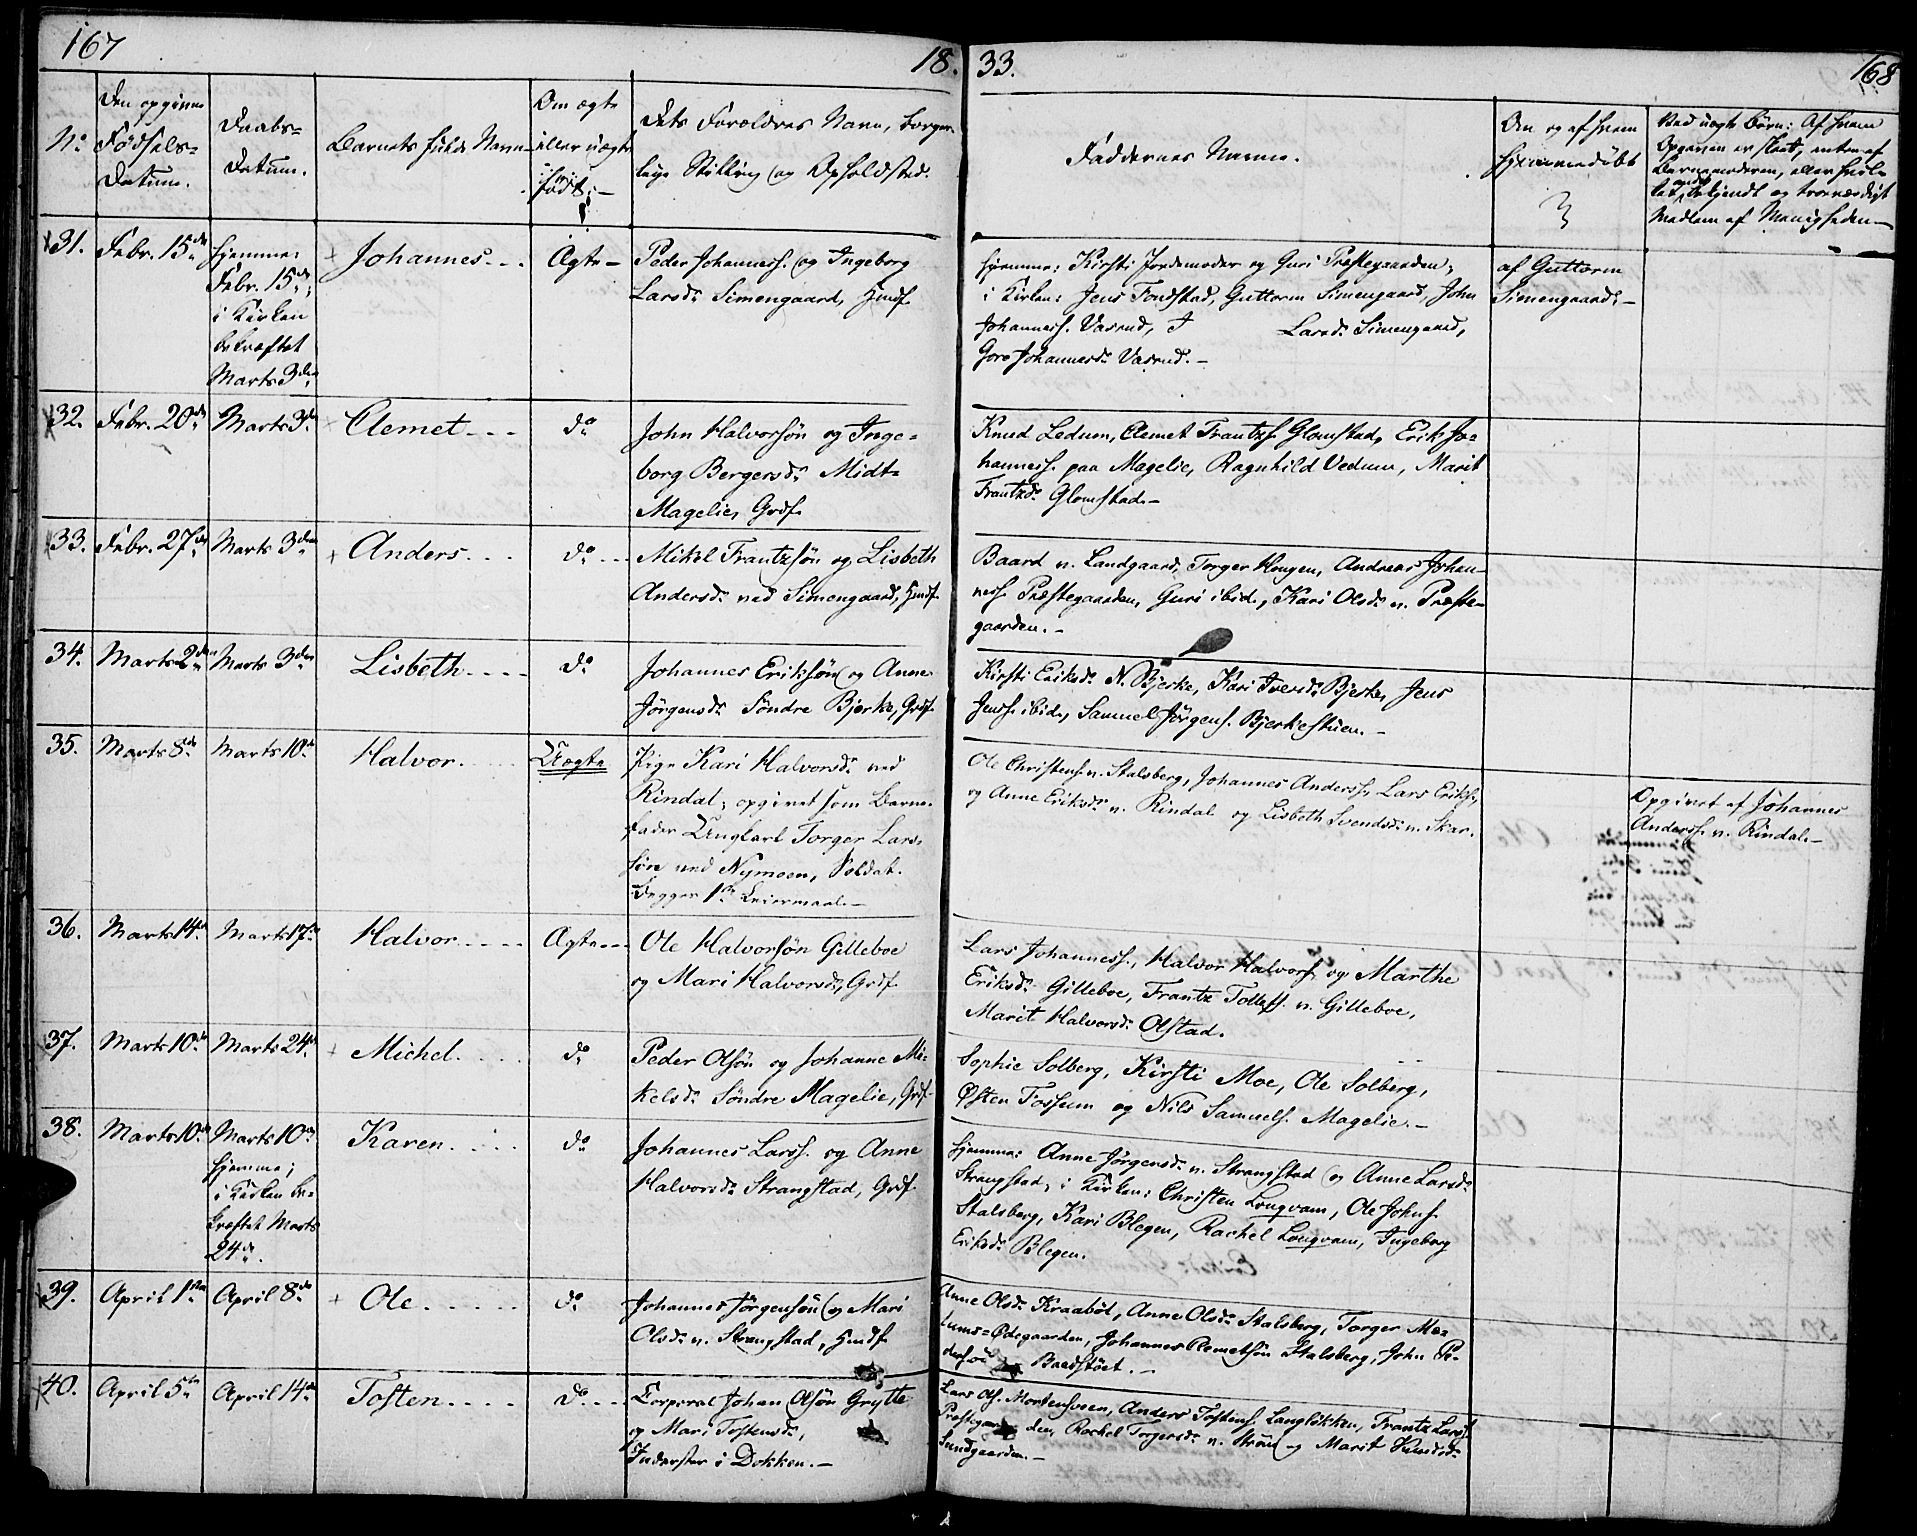 167
18.
33.
168
No
Den opgivne
Fødsels-
Datum.
Daabs-
Datum.
Barnets fulde Navn
Om ægte
eller uægte
født.
Dets Forældres Navn, borger-
lige Stilling og Opholdsted.
Faddernes Navne.
Om og af hvem
hjemmedøbt
Ved uægte Børn: Af hvem
Opgaven er skeet, enten af
Barnemoderen, eller hvil-
ket andet bekjendt og troværdigt
Medlem af Menigheden
31.
Febr. 15de
hjemme:
Febr. 15de;
i Kirken
bekræftet
Marts 3die
Johannes
Ægte
Peder Johanness. og Ingeborg
Larsdr Simengaard, Huusf.
hjemme: Kirsti Jordemoder og Guri Præstegaarden;
i Kirken: Jens Fondstad, Guttorm Simengaard, John
Johanness. Vasrud, J Larsdr Simengaard,
Goro Johannesdr Vasrud.
af Guttorm
Simengaard.
32.
Febr. 20de
Marts 3die
Clemet
do
John Halvorsøn og Inge-
borg Bergersdr Midt-
Magelie, Grdf.
Knud Ledum, Clemet Frantzs. Glomstad, Erik Jo-
hanness. paa Magelie, Ragnhild Vedum, Marit
Frantzdr Glomstad.
33.
Febr. 27de
Marts 3die
Anders
do
Mikel Frantzsøn og Lisbeth
Andersdr ved Simengaard, Huusf.
Baard v. Landgaard, Torger Haugen, Andreas Johan-
ness. Præstegaarden, Guri ibid., Kari Olsdr v. Præste-
gaarden.
34.
Marts 2den
Marts 3die
Lisbeth
do
Johannes Eriksøn og Anne
Jørgensdr Søndre Bjerke, Grdf.
Kirsti Eriksdr N. Bjerke, Kari Iversdr Bjerke, Jens
Jenss. ibid., Samuel Jørgens. Bjerkestuen.
35.
Marts 8de
Marts 10de
Halvor
Uægte
Pige Kari Halvorsdr ved
Rindal; opgivet som Barne-
fader Ungkarl Torger Lars-
søn ved Nymoen, Soldat.
Begges 1ste Leiermaal.
Ole Christens. v. Stalsberg, Johannes Anderss., Lars Eriks.,
og Anne Eriksdr v. Rindal og Lisbeth Svendsdr v. Skar.
Opgivet af Johannes
Anderss. v. Rindal.
36.
Marts 14de
Marts 17de
Halvor
Ægte
Ole Halvorsøn Gilleboe
og Mari Halvorsdr, Grdf.
Lars Johanness., Halvor Halvors. og Marthe
Eriksdr Gilleboe, Frantz Tollefs. v. Gilleboe,
Marit Halvorsdr Olstad.
37.
Marts 10de
Marts 24de
Michel
do
Peder Olsøn og Johanne Mi-
kelsdr Søndre Magelie, Grdf.
Sophie Solberg, Kirsti Moe, Ole Solberg,
Østen Fossum og Nils Samuels. Magelie.
38.
Marts 10de
Marts 10de
hjemme;
i Kirken be-
kræftet Marts
24de.
Karen
do
Johannes Larss. og Anne
Halvorsdr Strangstad, Grdf.
hjemme: Anne Jørgensdr v. Strangstad og Anne Larsdr
Strangstad; i Kirken: Christen Longvam, Ole Johns.
Stalsberg, Kari Blegen, Rachel Longvam, Ingeborg
Eriksdr Blegen.
39.
April 1ste
April 8de
Ole
do
Johannes Jørgensøn og Mari
Olsdr v. Strangstad, Huusf.
Anne Olsdr Kraabøl, Anne Olsdr Stalsberg, Torger Me-
lums-Ødegaarden, Johannes Clemetsøn Stalsberg, John Pe-
dersøn Baadstøet.
40.
April 5te
April 14de
Tosten
do
Corporal Johan Olsøn Grytte
og Mari Tostensdr,
Inderster i Dokken.
Lars Ols. Mortensveen, Anders Tostens. Langløkken, Frantz Larss.
Præstegaarden, Rachel Torgersdr v. Strøm og Marit Knudsdr
Lundgaarden.